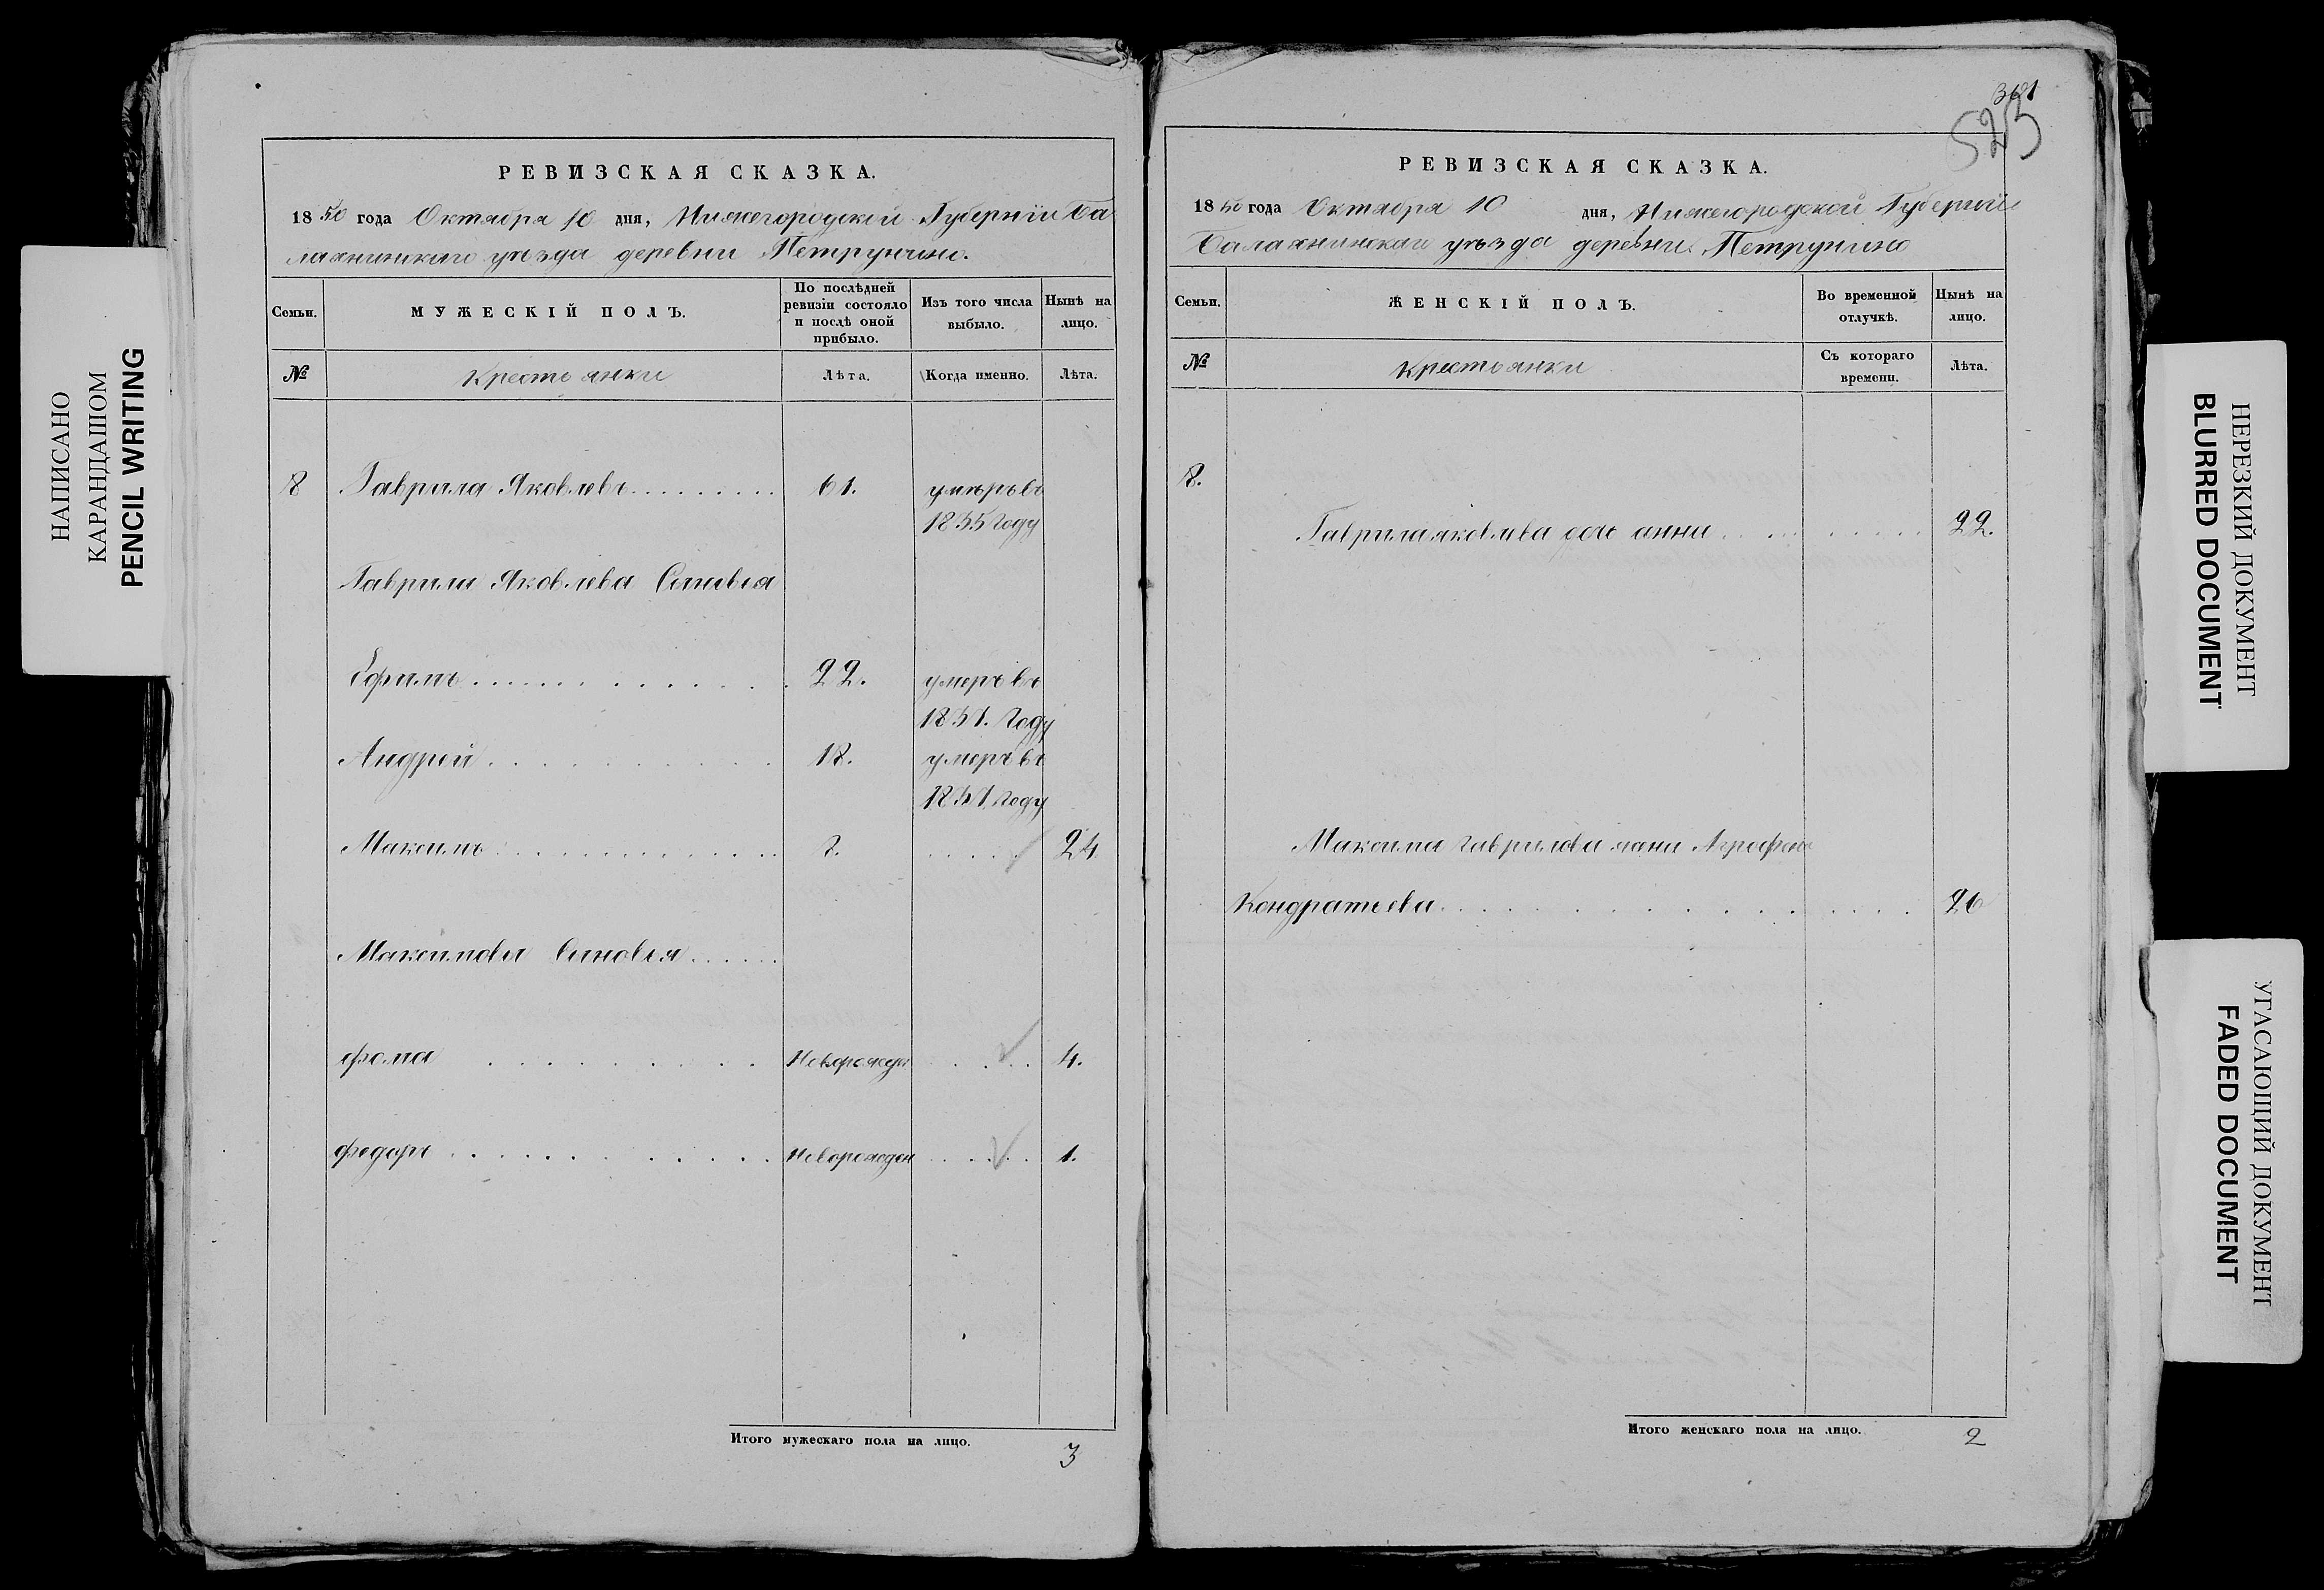 НАПИСАНО
КАРАНДАШОМ
PENCIL WRITING
РЕВИЗСКАЯ СКАЗКА.
1850 года Октября 10 дня, Нижегородской Губерніи Ба
лахнинскаго уѣзда деревни Петрунино.
Семьи.
МУЖЕСКІЙ ПОЛЪ.
По послѣдней ревизіи состояло и послѣ оной прибыло.
Изъ того числа выбыло.
Нынѣ на лицо.
№
Крестьянки
Лѣта.
Когда именно.
Лѣта.
8 Гаврила Яковлевъ 61. умѣръ въ
1835 году
Гаврилы Яковлева Сыновья
Ефимъ 22. умеръ въ
18 . году
Андрей 18. умеръ въ
18 году
Максимъ 24
Максимовы Сыновья
Фома Новорожден 4.
Федоръ Новорожден 1.
Итого мужескаго пола на лицо. 3
361
523
РЕВИЗСКАЯ СКАЗКА.
1850 года Октября 10 дня, Нижегородской Губерніи
Балахнинскаго уѣзда деревни Петрунино
Семьи.
ЖЕНСКІЙ ПОЛЪ.
Во временной отлучкѣ.
Нынѣ на лицо.
№
Крестьянки
Съ котораго времени.
Лѣта.
8.
Гаврила яковлева дочь анна 22.
Максима гаврилова жена Аграфена
Кондратьева 26
Итого женскаго пола на лицо. 2
НЕРЕЗКИЙ ДОКУМЕНТ
BLURRED DOCUMENT
УГАСАЮЩИЙ ДОКУМЕНТ
FADED DOCUMENT